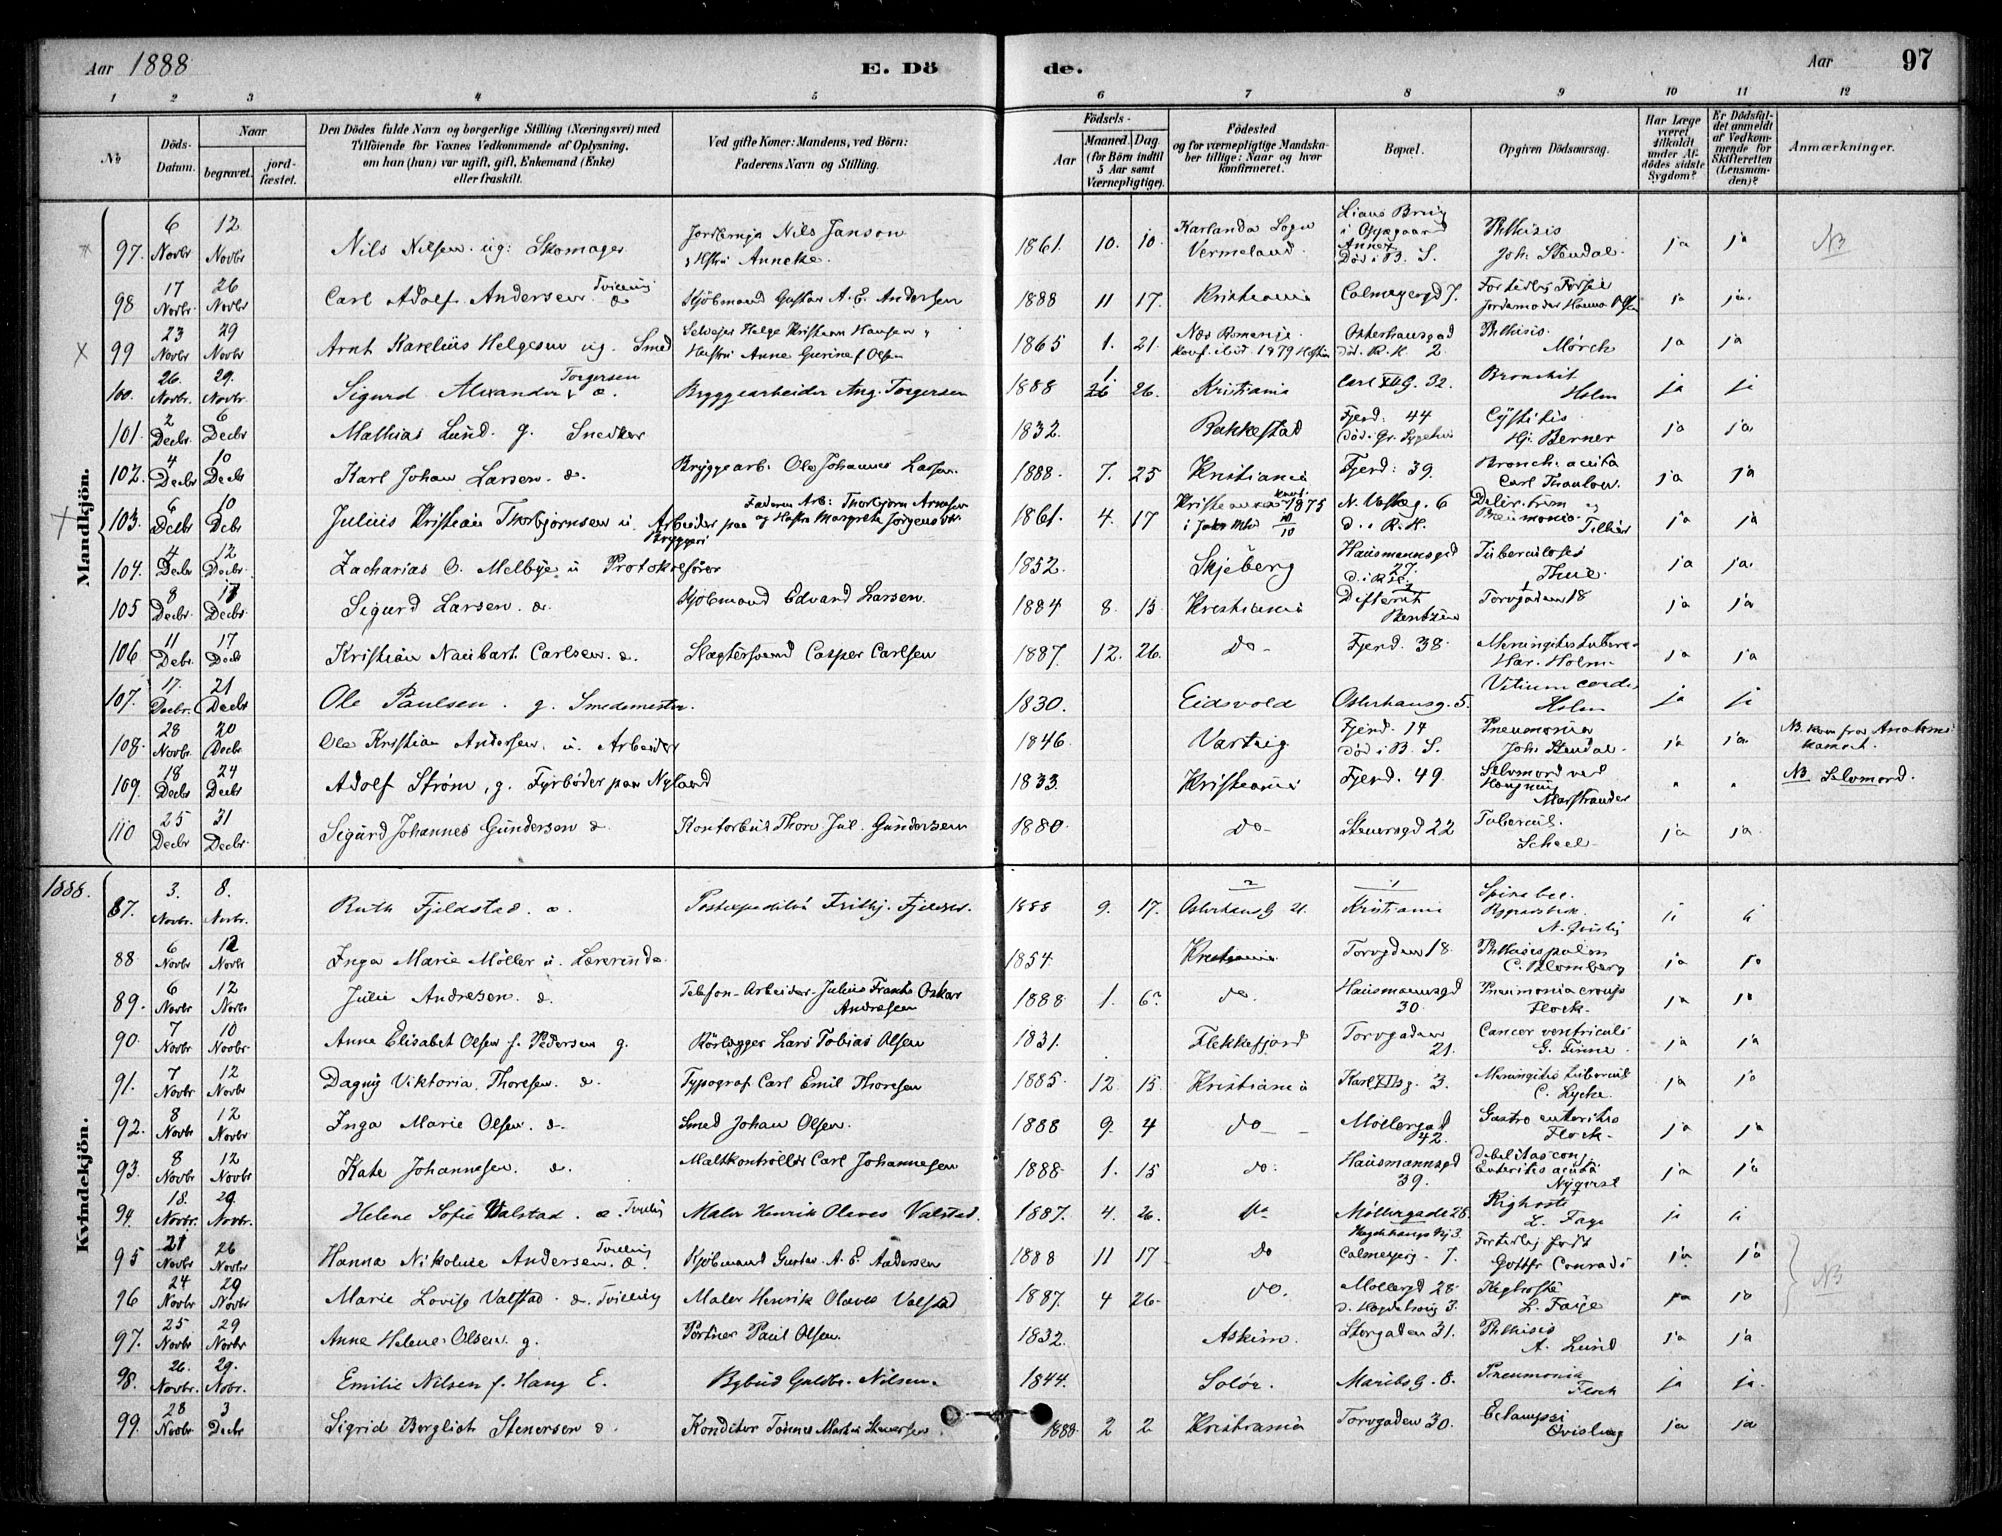 Aar 1888
E. Dö
de.
Aar
97
1 2 3 4 5 6 7 8 9 10 11 12
No
Döds-Datum.
Naar
begravet.
jord-fæstet.
Den Dödes fulde Navn og borgerlige Stilling (Næringsvei) med
Tilföiende for Voxnes Vedkommende af Oplysning,
om han (hun) var ugift, gift, Enkemand (Enke)
eller fraskilt.
Ved gifte Koner: Mandens, ved Börn:
Faderens Navn og Stilling.
Födsels-
Aar
Maaned.
Dag.
(for Börn indtil
5 Aar samt
Værnepligtige).
Födested
og for værnepligtige Mandska-
ber tillige: Naar og hvor
konfirmeret.
Bopæl.
Opgiven Dödsaarsag.
Har Læge
været
tilkaldt
under Af-
dödes sidste
Sygdom?
Er Dödsfal-
det anmeldt
af Vedkom-
mende for
Skifteretten
(Lensman-
den)?
Anmærkninger.
Mandkjön.
97. 6 Novbr 12 Novbr Nils Nilsen ug: Skomager Nils Janson Anneke. 1861. 10. 10. Karlanda Sogn Vermeland. Annex Död i B. S. Phthisis Joh. Stendal ja ja NB
98 17 Novbr 26 Novbr Carl Adolf Andersen Tvilling d. Kjöbmand Gustav A. E. Andersen 1888 11 17. Kristiania Calmeyergd 7. Fortidlig Födsel Jordemoder Hanna Olsen ja ja
99 23 Novbr 29 Novbr Arnt Karelius Helgesen ug. Smed Selveier Helge Kristian Hansen Hustru Anne Gurine f Olsen 1865 1. 21. Næs Romerige Osterhausgad död. R. H. 2 Phthisis Mörch ja ja
100. 26. Novbr. 29. Novbr. Sigurd Alexander Torgersen d. Bryggearbeider Aug. Torgersen 1888 1 26. Kristiania Carl XII G. 32. Bronchit Holm ja ja
101. 2 Decbr 6 Decbr Mathias Lund. g. Snedker 1832. Bakkestad Fjerd: 44 Död i Gr. Sygehus Cystitis Hj. Berner ja ja
102. 4 Decbr 10 Decbr Karl Johan Larsen d. Bryggearb. Ole Johannes Larsen 1888. 7. 25 Kristiania Fjerd: 39. Bronch: acuta Carl Thaulow ja ja
103. 6 Decbr 10 Debr Julius Kristian Thorbjörnsen u. Arbeider paa Bryggeri Faderen Arb: Thorbjörn Arnesen og Hustru Margrete Jörgensdtr 1861. 4. 17 Kristiania konf. 1875 i Jakob 10/10 N. Voldg. 6 d. i R. H. Delir. trem og Pneumonia. ja ja
104. 4 Decbr 12 Decbr. Zacharias O. Melbye u Protokolförer 1852. Skjeberg Hausmannsgd 27. d. i R. H. Tuberculosis Thue. ja ja
105 8 Decbr 17 Decbr Sigurd Larsen. d. Kjöbmand Edvard Larsen 1884 8. 13. Kristiania Difterit Bentzen Torvgaden 18 ja ja
106 11 Debr. 17 Decbr Kristian Naubart Carlsen. d. Slagtersvend Casper Carlsen 1887. 12. 26. do- Fjerd. 38. Meningitis tuberc. Har. Holm ja ja
107. 17. Decbr. 21 Decbr Ole Paulsen. g. Smedemester 1830. Eidsvold Osterhausg. 5. Vitium cordis Holm ja ja
108. 28 Novbr. 20 Decbr Ole Kristian Andersen. u. Arbeider 1846. Varteig Fjerd. 14 Död i B. S. Pneumonia Joh. Stendal ja ja NB. kom fra Anatomikamret.
109. 18 Decbr 24 Decbr Adolf Ström, g. Fyrböder paa Nyland 1833. Kristiania Fjerd. 49. Selvmord ved Hængning Marstrander " " NB Selvmord.
110 25 Decbr 31 Decbr. Sigurd Johannes Gundersen d. Kontorbud Thore Jul. Gundersen 1880. do- Stenersgd 22 Tubercul. Scheel ja ja
1888.
Kvindekjön.
87. 3. Novbr. 8. Novbr. Ruth Fjeldstad. d. Postexpeditör Fridtj. Fjeldst. 1888 9. 17. Osterhaus G 21. Kristiania Spina bec. Rygradsbrok N. Quislig ja ja
88. 6 Novbr 12 Novbr Inga Marie Möller u. Lærerinde 1854. Kristiania Torvgaden 18. Phthisis pulm C. Blomberg ja ja
89. 6 Novbr 12 Novbr. Julie Andresen. d. Telefon-Arbeider Julius Oskar Andresen 1888 1. 6. do. Hausmannsgd 30. Pneumonia croup Flock ja ja
90. 7 Novbr 10 Novbr Anna Elisabet Olsen f. Pedersen g. Rörlægger Lars Tobias Olsen 1831. Flekkefjord Torvgaden 21. Cancer ventriculi G. Finne. ja ja
91. 7 Novbr 12 Novbr Dagny Viktoria Thoresen. d. Typograf Carl Emil Thoresen 1885. 12 15 Kristiania Karl XIIs g. 3. Meningitis tubercul C. Lycke. ja ja
92. 8 Novbr 12 Novbr Inga Marie Olsen. d. Smed Johan Olsen. 1888 9. 4 do - Möllergad 42. Gastro enteritis Flock ja ja
93. 8 Novbr 12 Novbr Kate Johannesen. d. Maltkontrollör Carl Johannesen 1888. 1. 15 do. Hausmannsgd 39. Debilitas cong Enteritis acuta Nyqvist ja ja
94. 18. Novbr. 29. Novbr. Helene Sofie Valstad. d. Tvilling Maler Henrik Olaves Valstad. 1887. 4. 26. do Möllergade 28. Kighoste L. Faye ja ja
95 21 Novbr 26 Novbr Hanna Nikoline Andersen. Tvilling d. Kjöbmand Gustav A. E. Andersen 1888 11 17 do Calmeyerg. 7. Fortidlig föds Gottfr Conradi ja ja
96 24 Novbr 29 Novbr Marie Lovise Valstad. d. Tvilling Maler Henrik Olaves Valstad 1887. 4 26. do. Möllergd 28 Kighoste L. Faye ja ja NB
97. 25 Novbr 29 Novbr Anne Helene Olsen g. Portner Paul Olsen. 1832. Askim. Storgaden 31. Phthisis A. Lund ja ja
98. 26. Novbr. 29. Novbr. Emilie Nilsen f. Haug E. Bybud Guldbr. Nilsen. 1844. Solör. Maribs G. 8. Pneumonia Flock ja ja.
99. 28 Novbr 3 Decbr Sigrid Borglich Stenersen d. Konditor Tönnes Martin Stenersen 1888. 2 2 Kristiania Torvgaden 30. Eclampsi Qvisling ja ja